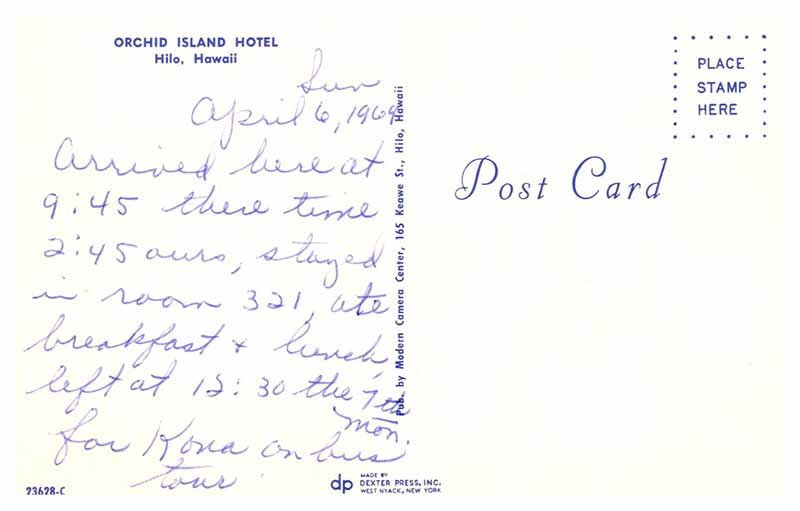 ORCHID ISLAND HOTEL
Hilo, Hawaii
Sun
April 6, 1969
Arrived here at
9:45 there time
2:45 ours, stayed
in room 321, ate
breakfast + lunch,
left at 12:30 the 7th
Mon.
for Kona on bus
tour.
23628-C
Pub. by Modern Camera Center, 165 Keawe St., Hilo, Hawaii
dp
MADE BY
DEXTER PRESS, INC.
WEST NYACK, NEW YORK
PLACE
STAMP
HERE
Post Card